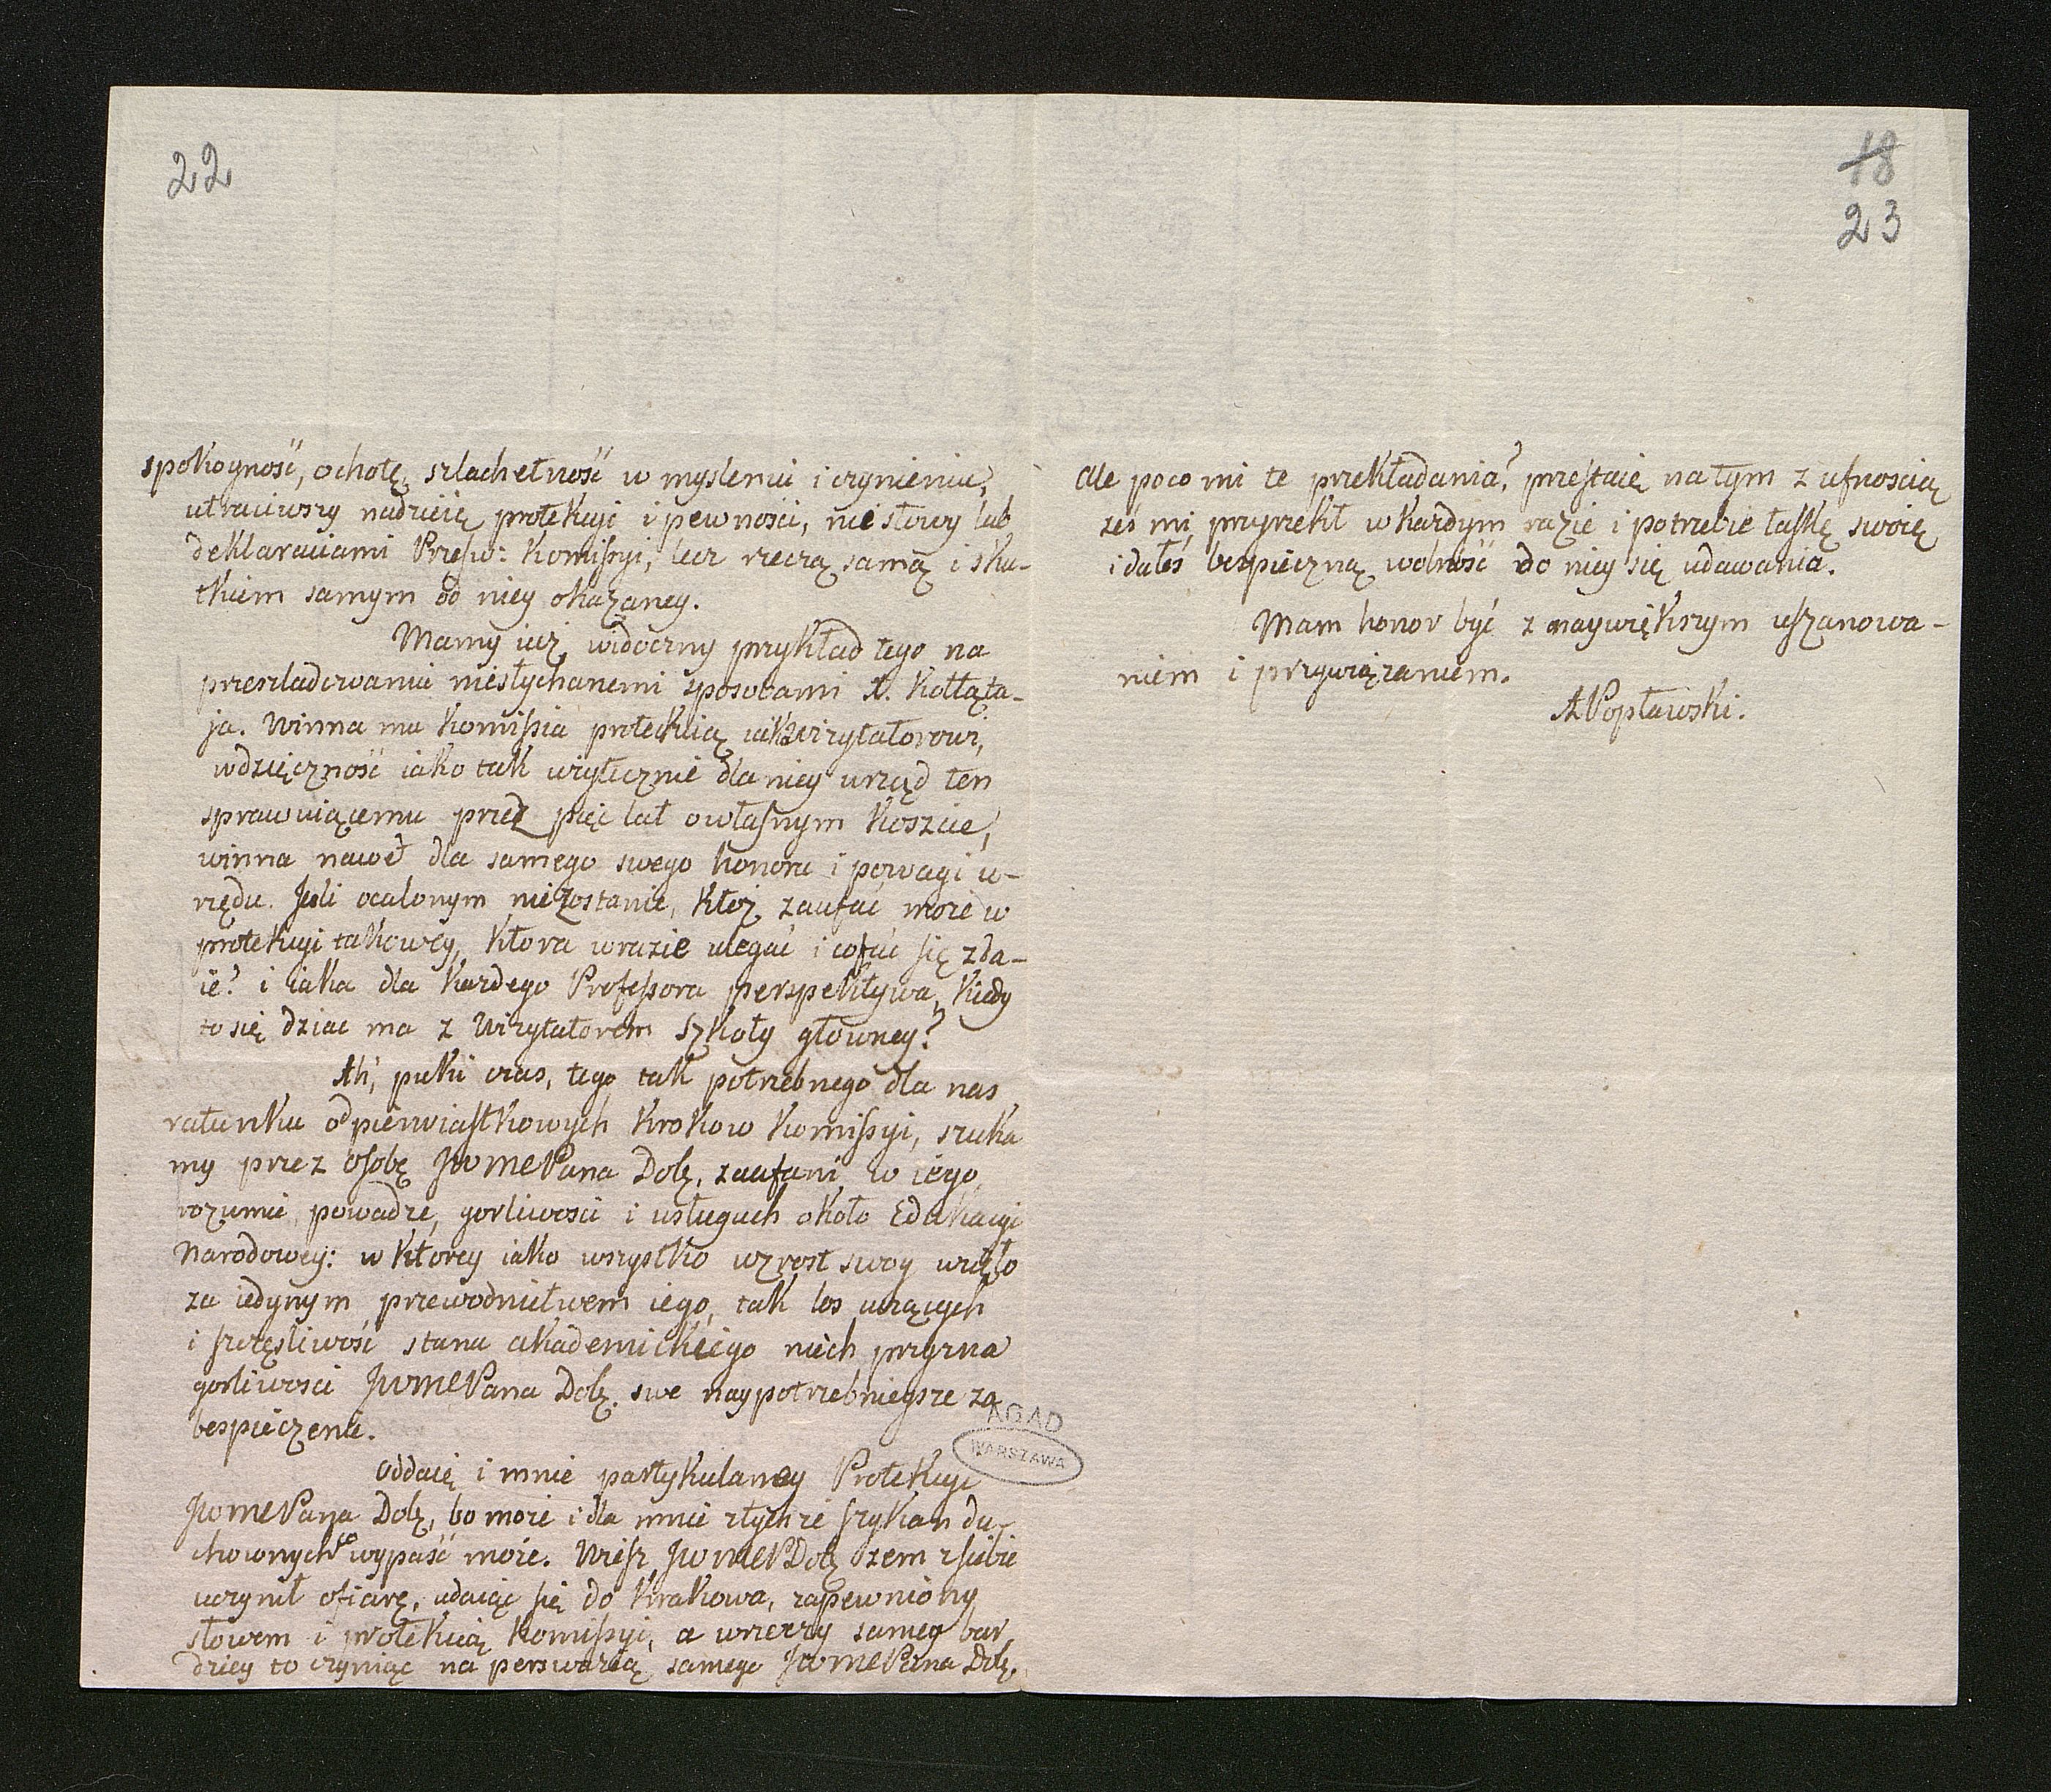 22
spokoyność, ochotę, szlachetność w mysleniu i czynieniu,
utraciwszy nadzieię protekcyi i pewności, nie słowy lub
deklaraciami Przesw: Komissyi, lecz rzeczą samą i sku-
tkiem samym od niey okazaney.
Mamy iuż widoczny przykład tego na
przesladowaniu niesłychanemi sposobami X. Kołłąta-
ja. Winna mu Komissia protekcią iako wizytatorowi,
wdzięczność iako tak użytecznie dla niey urząd ten
sprawuiącemu przez pięć lat o własnym koszcie,
winna nawet dla samego swego honoru i powagi u-
rzędu. Jeśli ocalonym nie zostanie, któż zaufać może w
protekcyi takowey, ktora w razie ulegać i cofać się zda-
ie? i iaka dla każdego Professora perspektywa, kiedy
to się dziac ma z Wizytatorem Szkoły głowney?
Ah, puki czas, tego tak potrzebnego dla nas
ratunku od pierwiastkowych krokow Komissyi, szuka
my przez osobę JWMCPana Dobz. zaufani w iego
rozumie, powadze, gorliwosci i usługach około Edukacyi
Narodowey: w ktorey iako wszystko wzrost swoy wzięło
za iedynym przewodnictwem iego, tak los uczących
i szczęśliwość stanu akademickiego niech przyzna
gorliwosci JWMCPana Dobz. swe naypotrzebnieysze za
bespieczenie.
Oddaię i mnie partykularney Protekcyi
JWMCPana Dobz, bo może i dla mnie z tychże szykan du-
chownych co wypaść może. Wiesz JWMCPDobz żem z siebie
uczynił ofiarę, udaiąc się do Krakowa, zapewniony
słowem i protekcią Komissyi, a w rzeczy samey bar
dziey to czyniąc na perswazią samego JWMCPana Dobz.
AGAD
WARSZAWA
18
23
Ale poco mi te przekładania? przestaię na tym z ufnoscią
żeś mi przyrzekł w każdym razie i potrzebie łaskę swoię
i dałeś bespieczną wolność do niey się udawania.
Mam honor być z naywiększym uszanowa-
niem i przywiązaniem.
A Popławski.